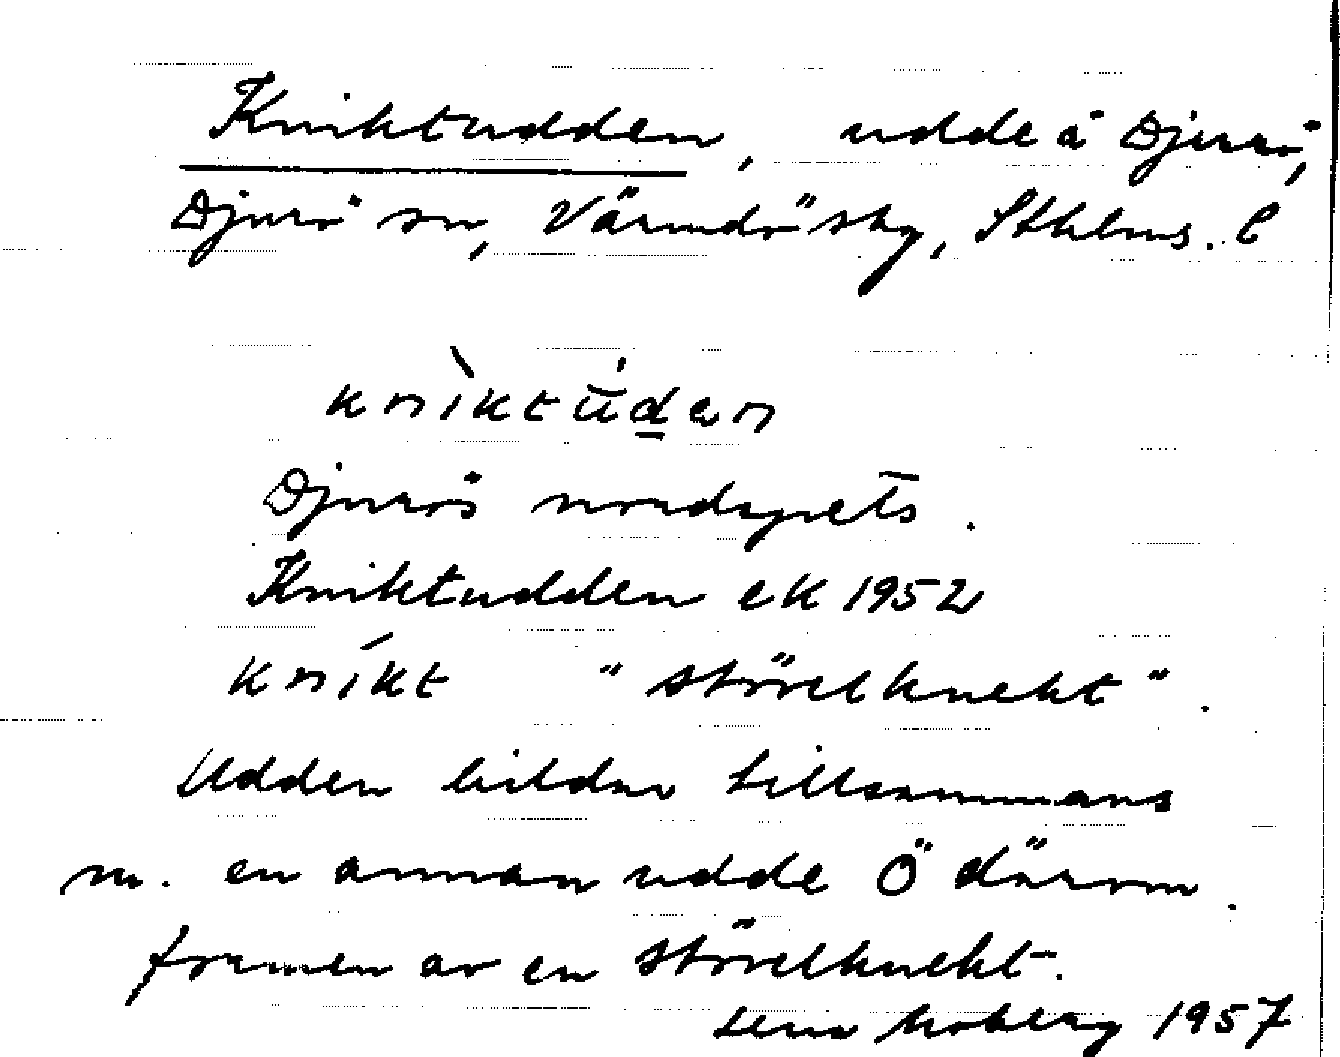 Kniktudden, udde å Djurö,
Djurö sn, Värmdö skg, Sthlms. l
knìktúden
Djurös nordspets.
Kniktudden ek 1952
kníkt "stövelknekt".
Udden bildar tillsammans
m. en annan udde Ö därom
formen av en stövelknekt.
Lena Moberg 1957